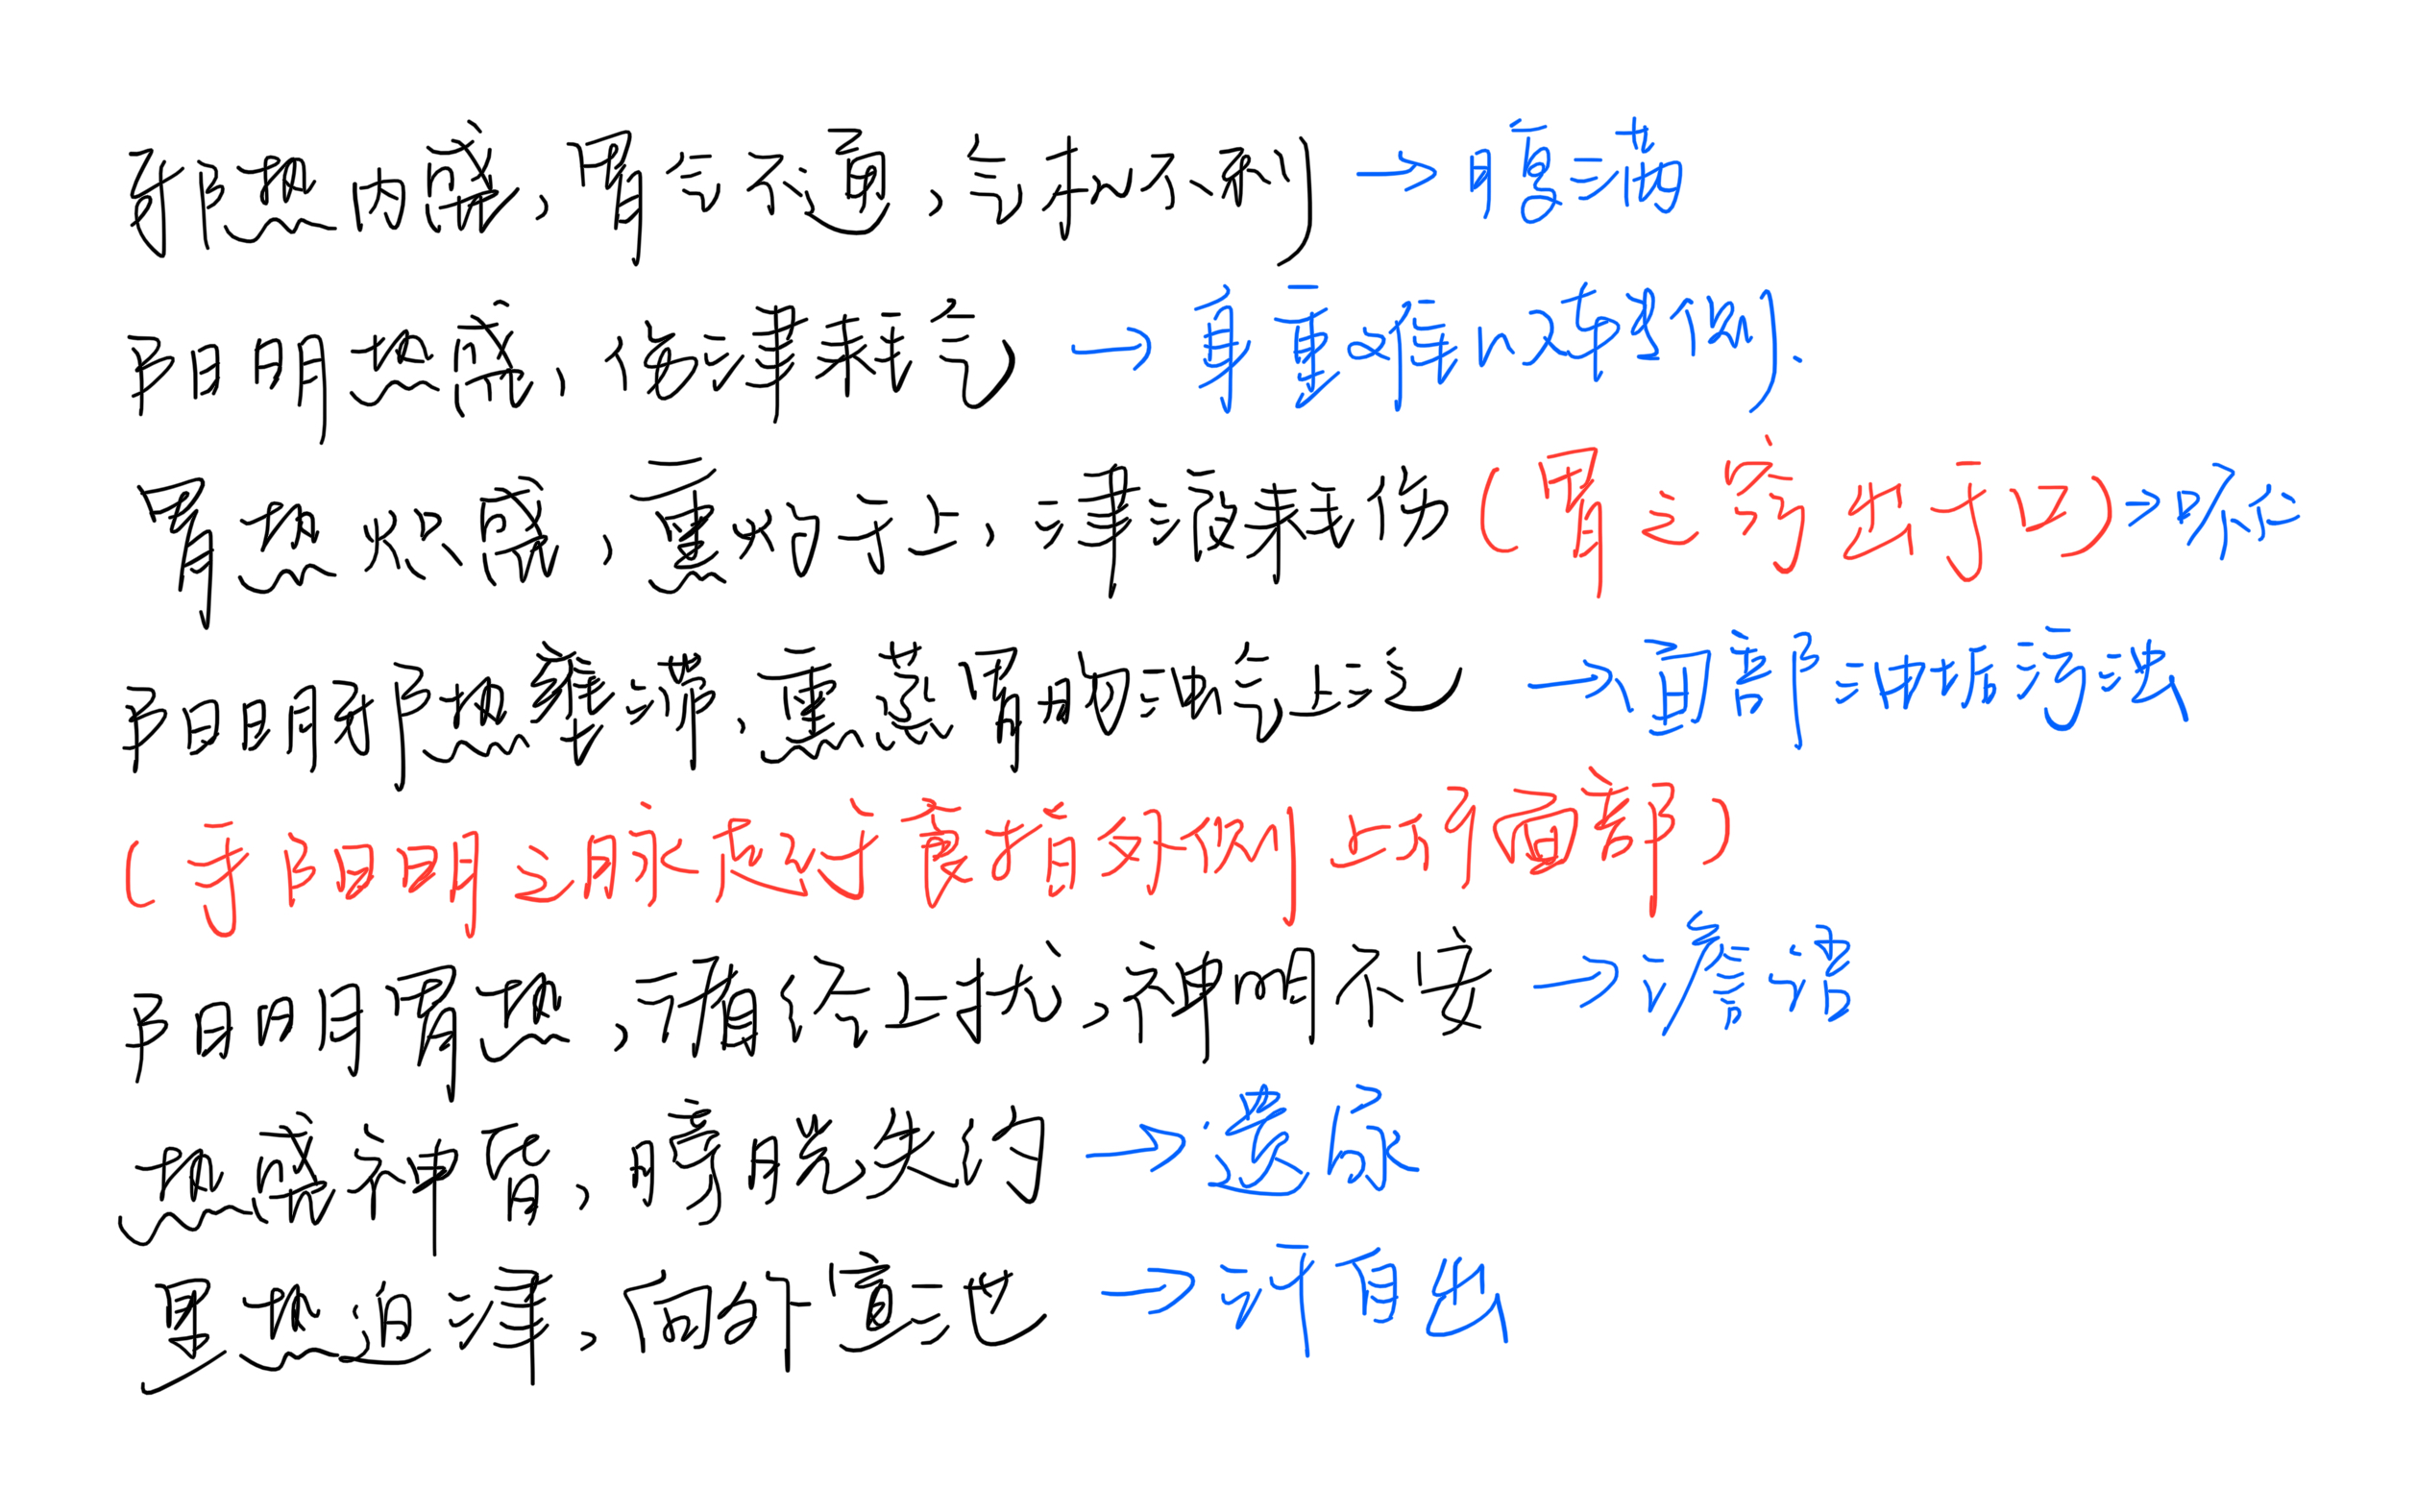 邪热内盛,胃气不通,气机不利→腹满
阳明热盛,伤津耗气→身重难以转侧.
胃热炽盛,熏灼于上,津液耗伤(胃之窍出于口)→口不仁
阳明邪热壅滞,熏蒸胃肠浊气上泛→面部油垢污浊
(手阳明之脉起于食指外侧上行面部)
阳明胃热,循经上扰,神明不安→谵语
热盛神昏,膀胱失约→遗尿
里热迫津,向外宣泄→汗自出